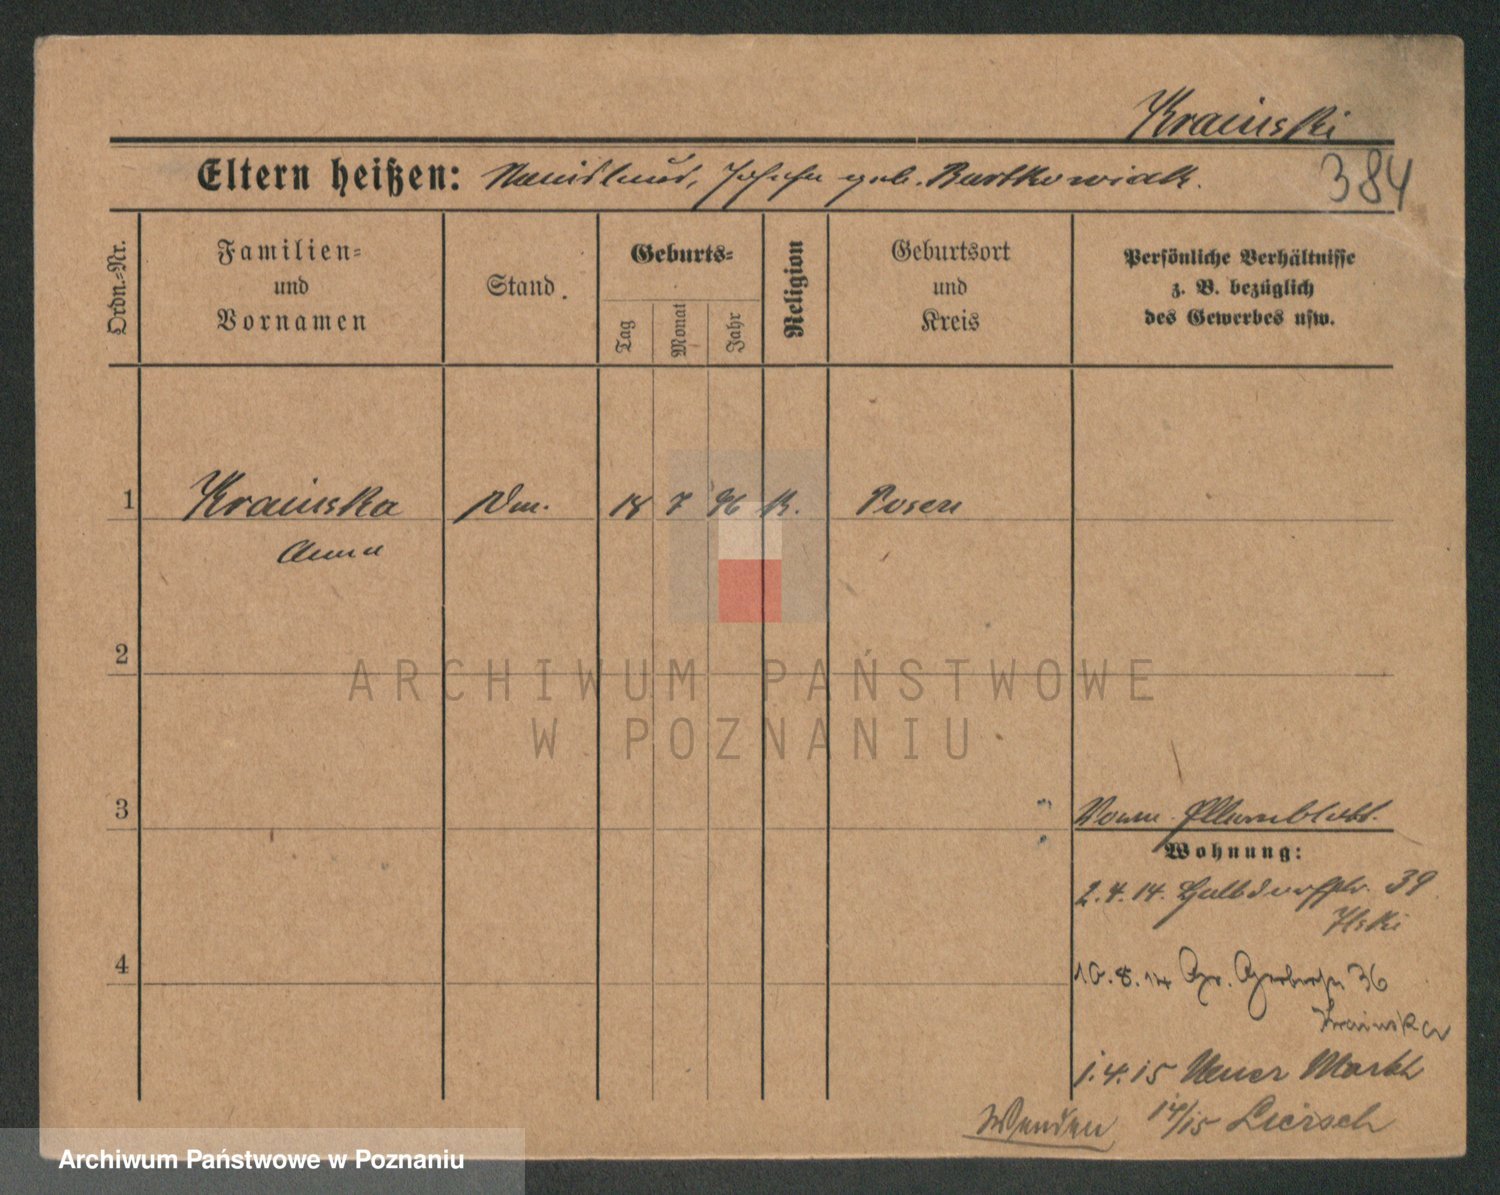 Krainski
Eltern heißen: Josefa geb. Bartkowiak.
384
Ordn.-Nr.
Familien-
und
Vornamen
Stand.
Geburts-
Tag
Monat
Jahr
Religion
Geburtsort
und
Kreis
Persönliche Verhältnisse
z. B. bezüglich
des Gewerbes usw.
1
Krainska
18 7 96 K. Posen
Anna
2
ARCHIWUM PAŃSTWOWE
W POZNANIU
3
Wohnung:
2.4.14. Halbdorfstr. 39
4
10.8.14 Gr. Gerberstr 36
Krainska
1.4.15 Neuer Markt
14/15 Liersch
Wenden
Archiwum Państwowe w Poznaniu